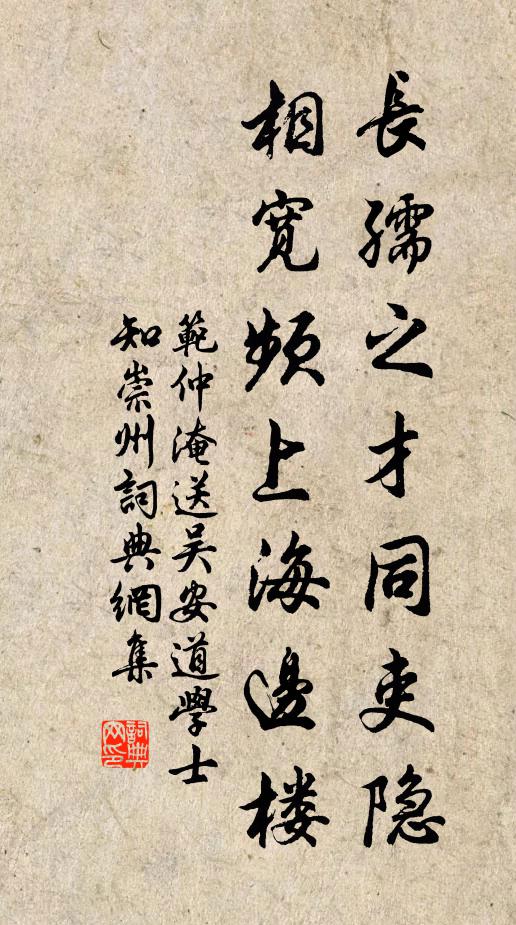 長孺之才同吏隐
相寬頻上海邊楼
範仲淹送吴安道學士
知崇州詞典網集
詞典
网印